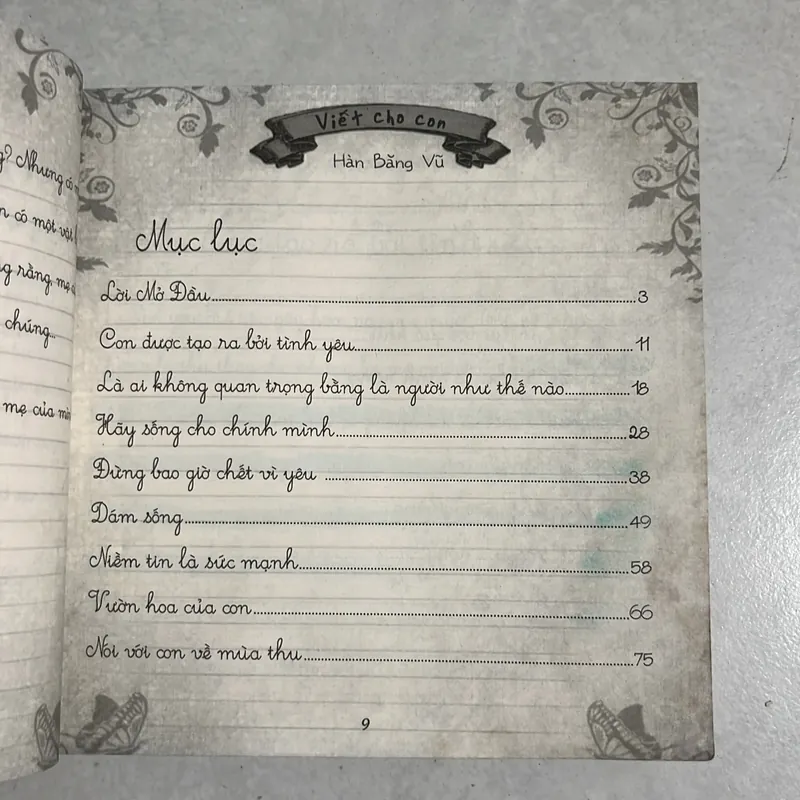 ? Nhưng có
có một vật
rằng, mẹ
chúng...
mẹ của
Viết cho con
Hàn Băng Vũ
Mục lục
Lời Mở Đầu 3
Con được tạo ra bởi tình yêu 11
Là ai không quan trọng bằng là người như thế nào 18
Hãy sống cho chính mình 28
Đừng bao giờ chết vì yêu 38
Dám sống 49
Niềm tin là sức mạnh 58
Vườn hoa của con 66
Nói với con về mùa thu 75
9